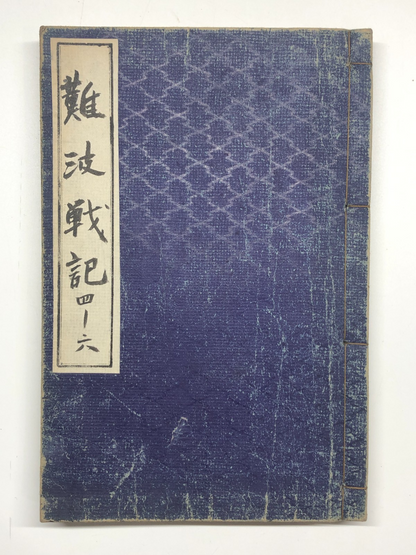 難波戦記四ー六